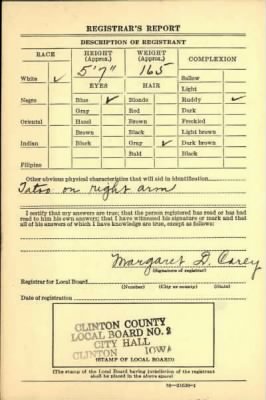 REGISTRAR'S REPORT
DESCRIPTION OF REGISTRANT
RACE HEIGHT (Approx.) WEIGHT (Approx.) COMPLEXION
5'7" 165 Sallow
White ✓ EYES HAIR Light
Negro Blue ✓ Blonde Ruddy ✓
Gray Red Dark
Oriental Hazel Brown Freckled
Brown Black Light brown
Indian Black Gray ✓ Dark brown
Bald Black
Filipino
Other obvious physical characteristics that will aid in identification
Tatoo on right arm
I certify that my answers are true; that the person registered has read or has had
read to him his own answers; that I have witnessed his signature or mark and that
all of his answers of which I have knowledge are true, except as follows:
Margaret D. Carey
(Signature of registrar)
Registrar for Local Board
(Number) (City or county) (State)
Date of registration
CLINTON COUNTY
LOCAL BOARD NO. 2
CITY HALL
CLINTON IOWA
(STAMP OF LOCAL BOARD)
(The stamp of the Local Board having jurisdiction of the registrant
shall be placed in the above space)